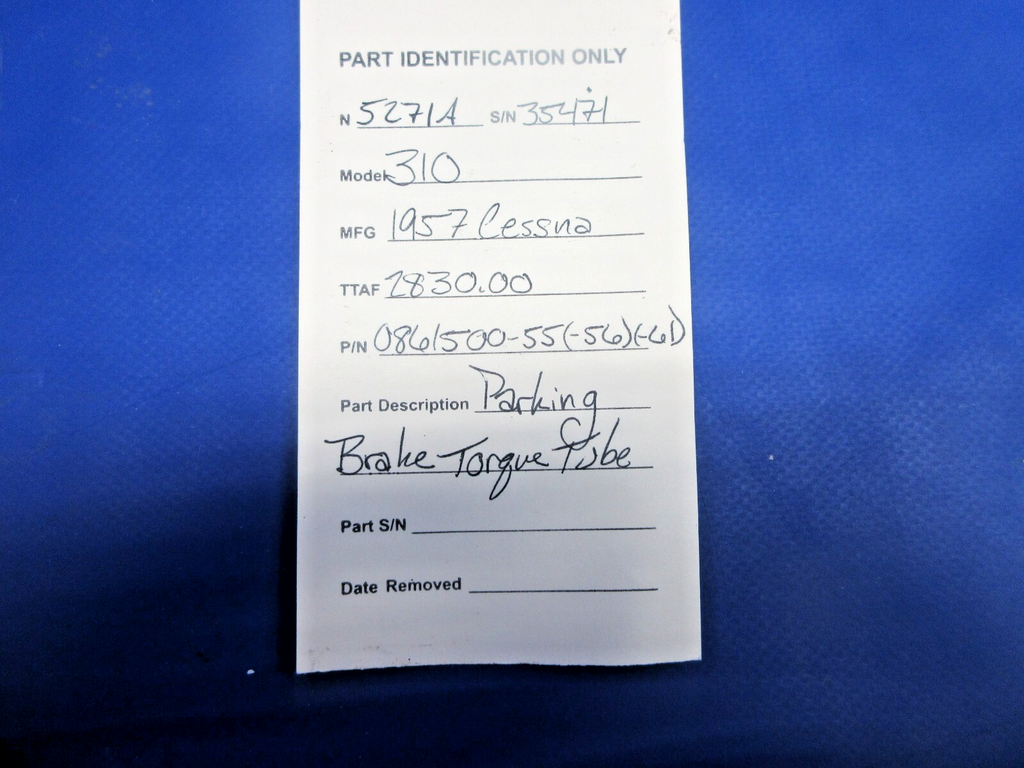 PART IDENTIFICATION ONLY
N 5271A S/N 35471
Model 310
MFG 1957 Cessna
TTAF 2830.00
P/N 0861500-55(-56)(-61)
Part Description Parking
Brake Torque Tube
Part S/N
Date Removed